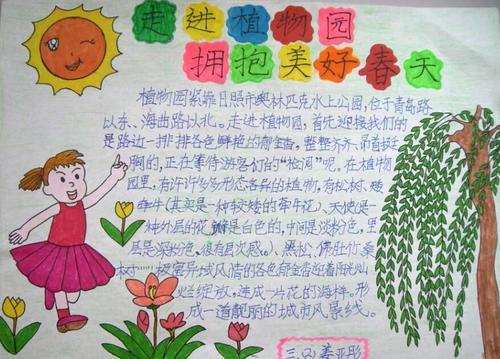 走进植物园
拥抱美好春天
植物园紧靠日照市奥林匹克水上公园,位于青岛路
以东、海曲路以北。走进植物园,首先迎接我们的
是路边一排排各色鲜艳的郁金香,整整齐齐、昂首挺
胸的,正在等待游客们的“检阅”呢。在植物
园里,有许许多多形态各异的植物,有松树、矮
牵牛(其实是一种较矮的牵牛花)、天使
一种外层的花瓣是白色的,中间是淡粉色,里
层是深粉色,很有层次感。)、黑松、佛肚竹、桑
树……极富异域风情的各色郁金香迎着阳光灿
烂绽放,连成一片花的海洋。形
成一道靓丽的城市风景线。
三.(2)姜亚彤